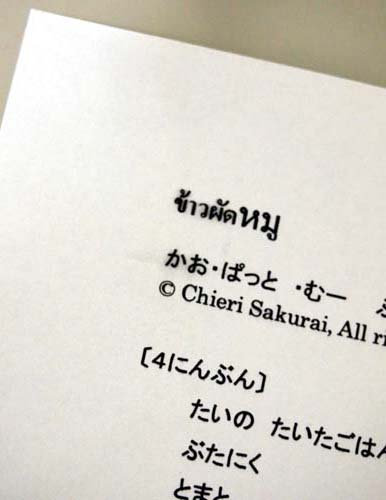 ข้าวผัดหมู
かお・ぱっと ・むー
© Chieri Sakurai, All
〔4にんぶん〕
たいの たいたごはん
ぶたにく
とまと